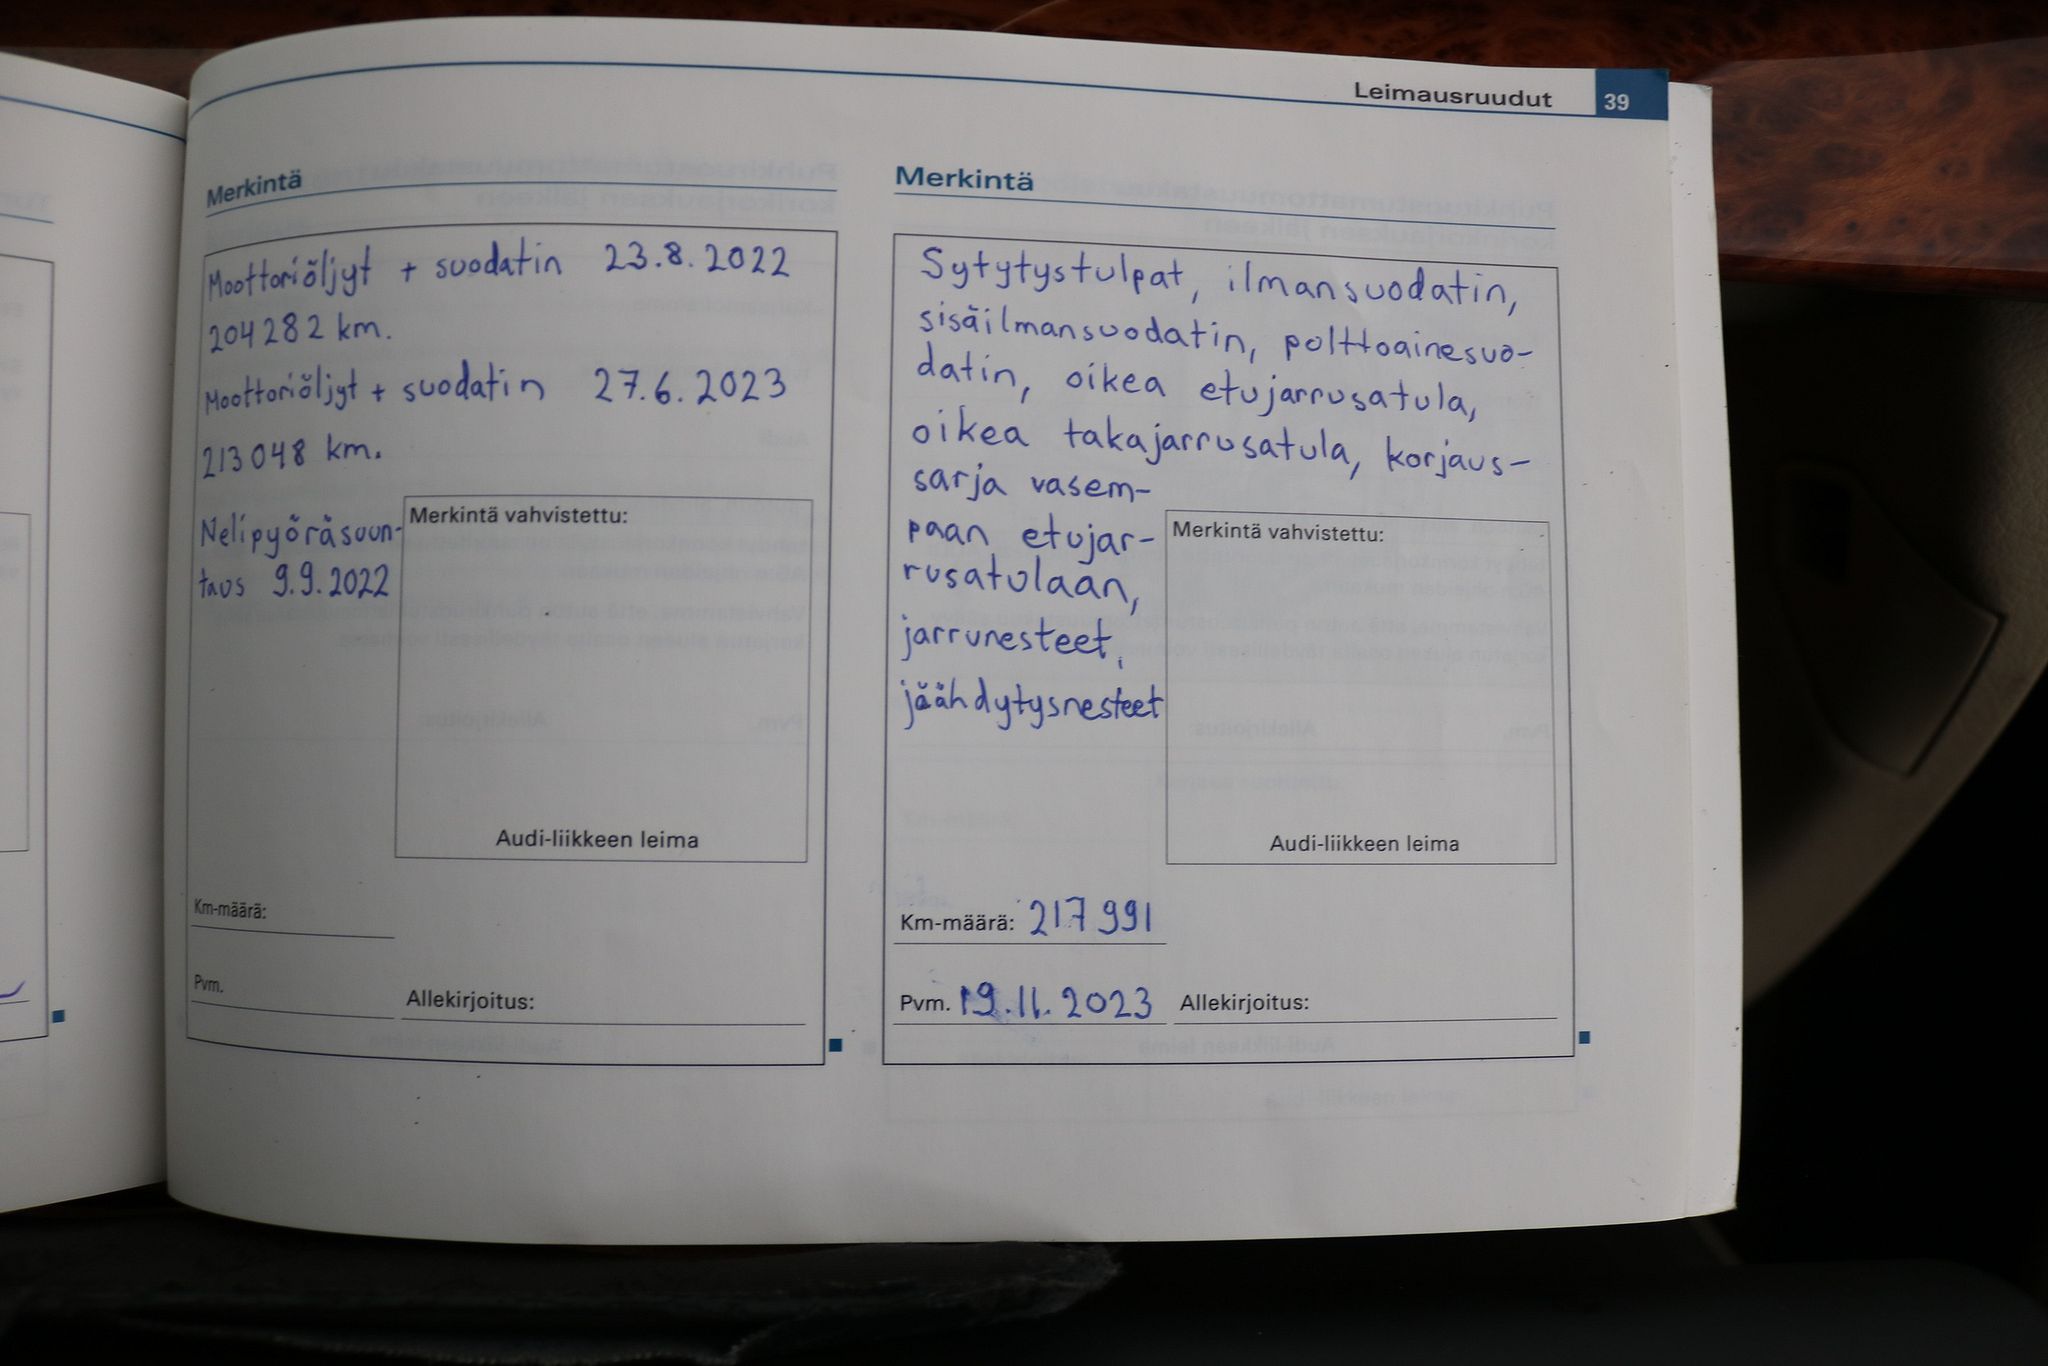 Leimausruudut 39
Merkintä
Moottoriöljyt + suodatin 23.8.2022
204282 km.
Moottoriöljyt + suodatin 27.6.2023
213048 km.
Nelipyöräsuun-
taus 9.9.2022
Merkintä vahvistettu:
Audi-liikkeen leima
Km-määrä:
Pvm.
Allekirjoitus:
Merkintä
Sytytystulpat, ilmansuodatin,
sisäilmansuodatin, polttoainesuo-
datin, oikea etujarrusatula,
oikea takajarrusatula, korjaus-
sarja vasem-
paan etujar-
rusatulaan,
jarrunesteet,
jäähdytysnesteet
Merkintä vahvistettu:
Audi-liikkeen leima
Km-määrä: 217991
Pvm. 19.11.2023 Allekirjoitus: